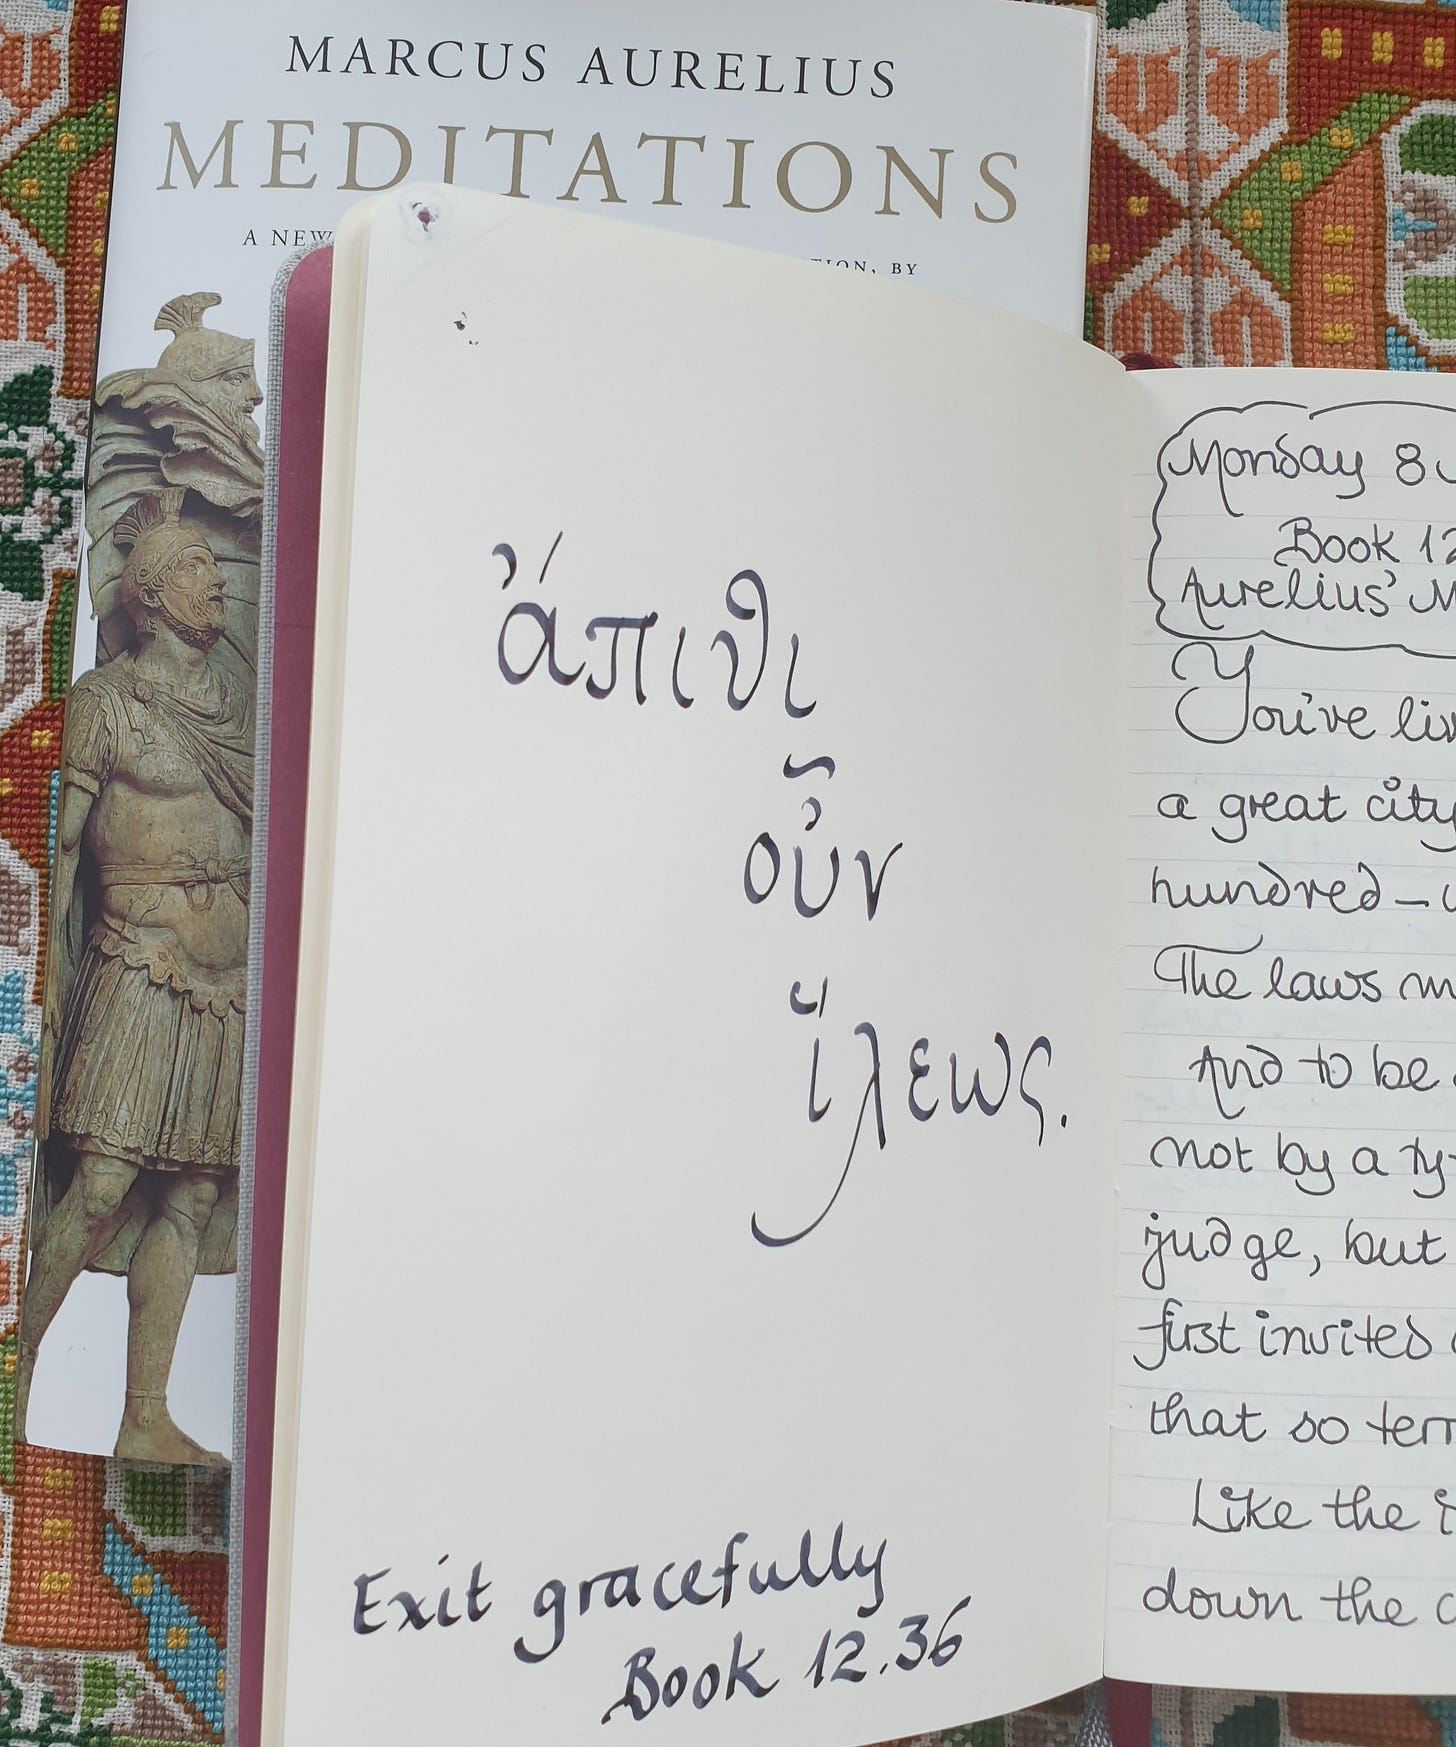 MARCUS AURELIUS
MEDITATIONS
A NEW
BY
ἄπιθι
οὖν
ἵλεως.
Exit gracefully
Book 12.36
Monday 8
Book 12
Aurelius' M
You've liv
a great city
hundred –
The laws m
And to be
not by a ty-
judge, but
first invited
that so terr
Like the
down the